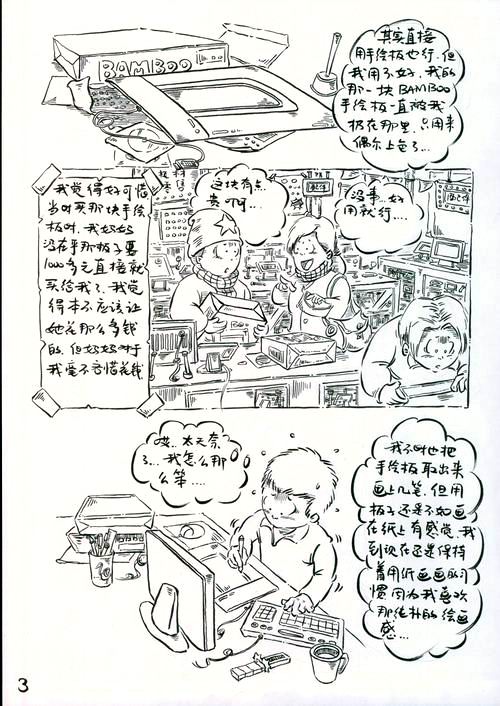 其实直接
用手绘板也行.但
我用不好.我的
那一块BAMBOO
手绘板一直被我
扔在那里.只用来
偶尔上色了...
BAMBOO
我觉得好可惜
当时买那块手绘
板时.我妈妈
没在乎那板子要
1000多元直接就
买给我了.我觉
得本不应该让
她花那么多钱
的.但妈妈对于
我毫不吝惜花钱
这块有点
贵啊...
没事...好
用就行...
哎..太无奈
了...我怎么那
么笨...
我不时也把
手绘板取出来
画上几笔.但用
板子还是不如画
在纸上有感觉.我
到现在还是保持
着用纸画画的习
惯因为我喜欢
那纯朴的绘画
感...
3